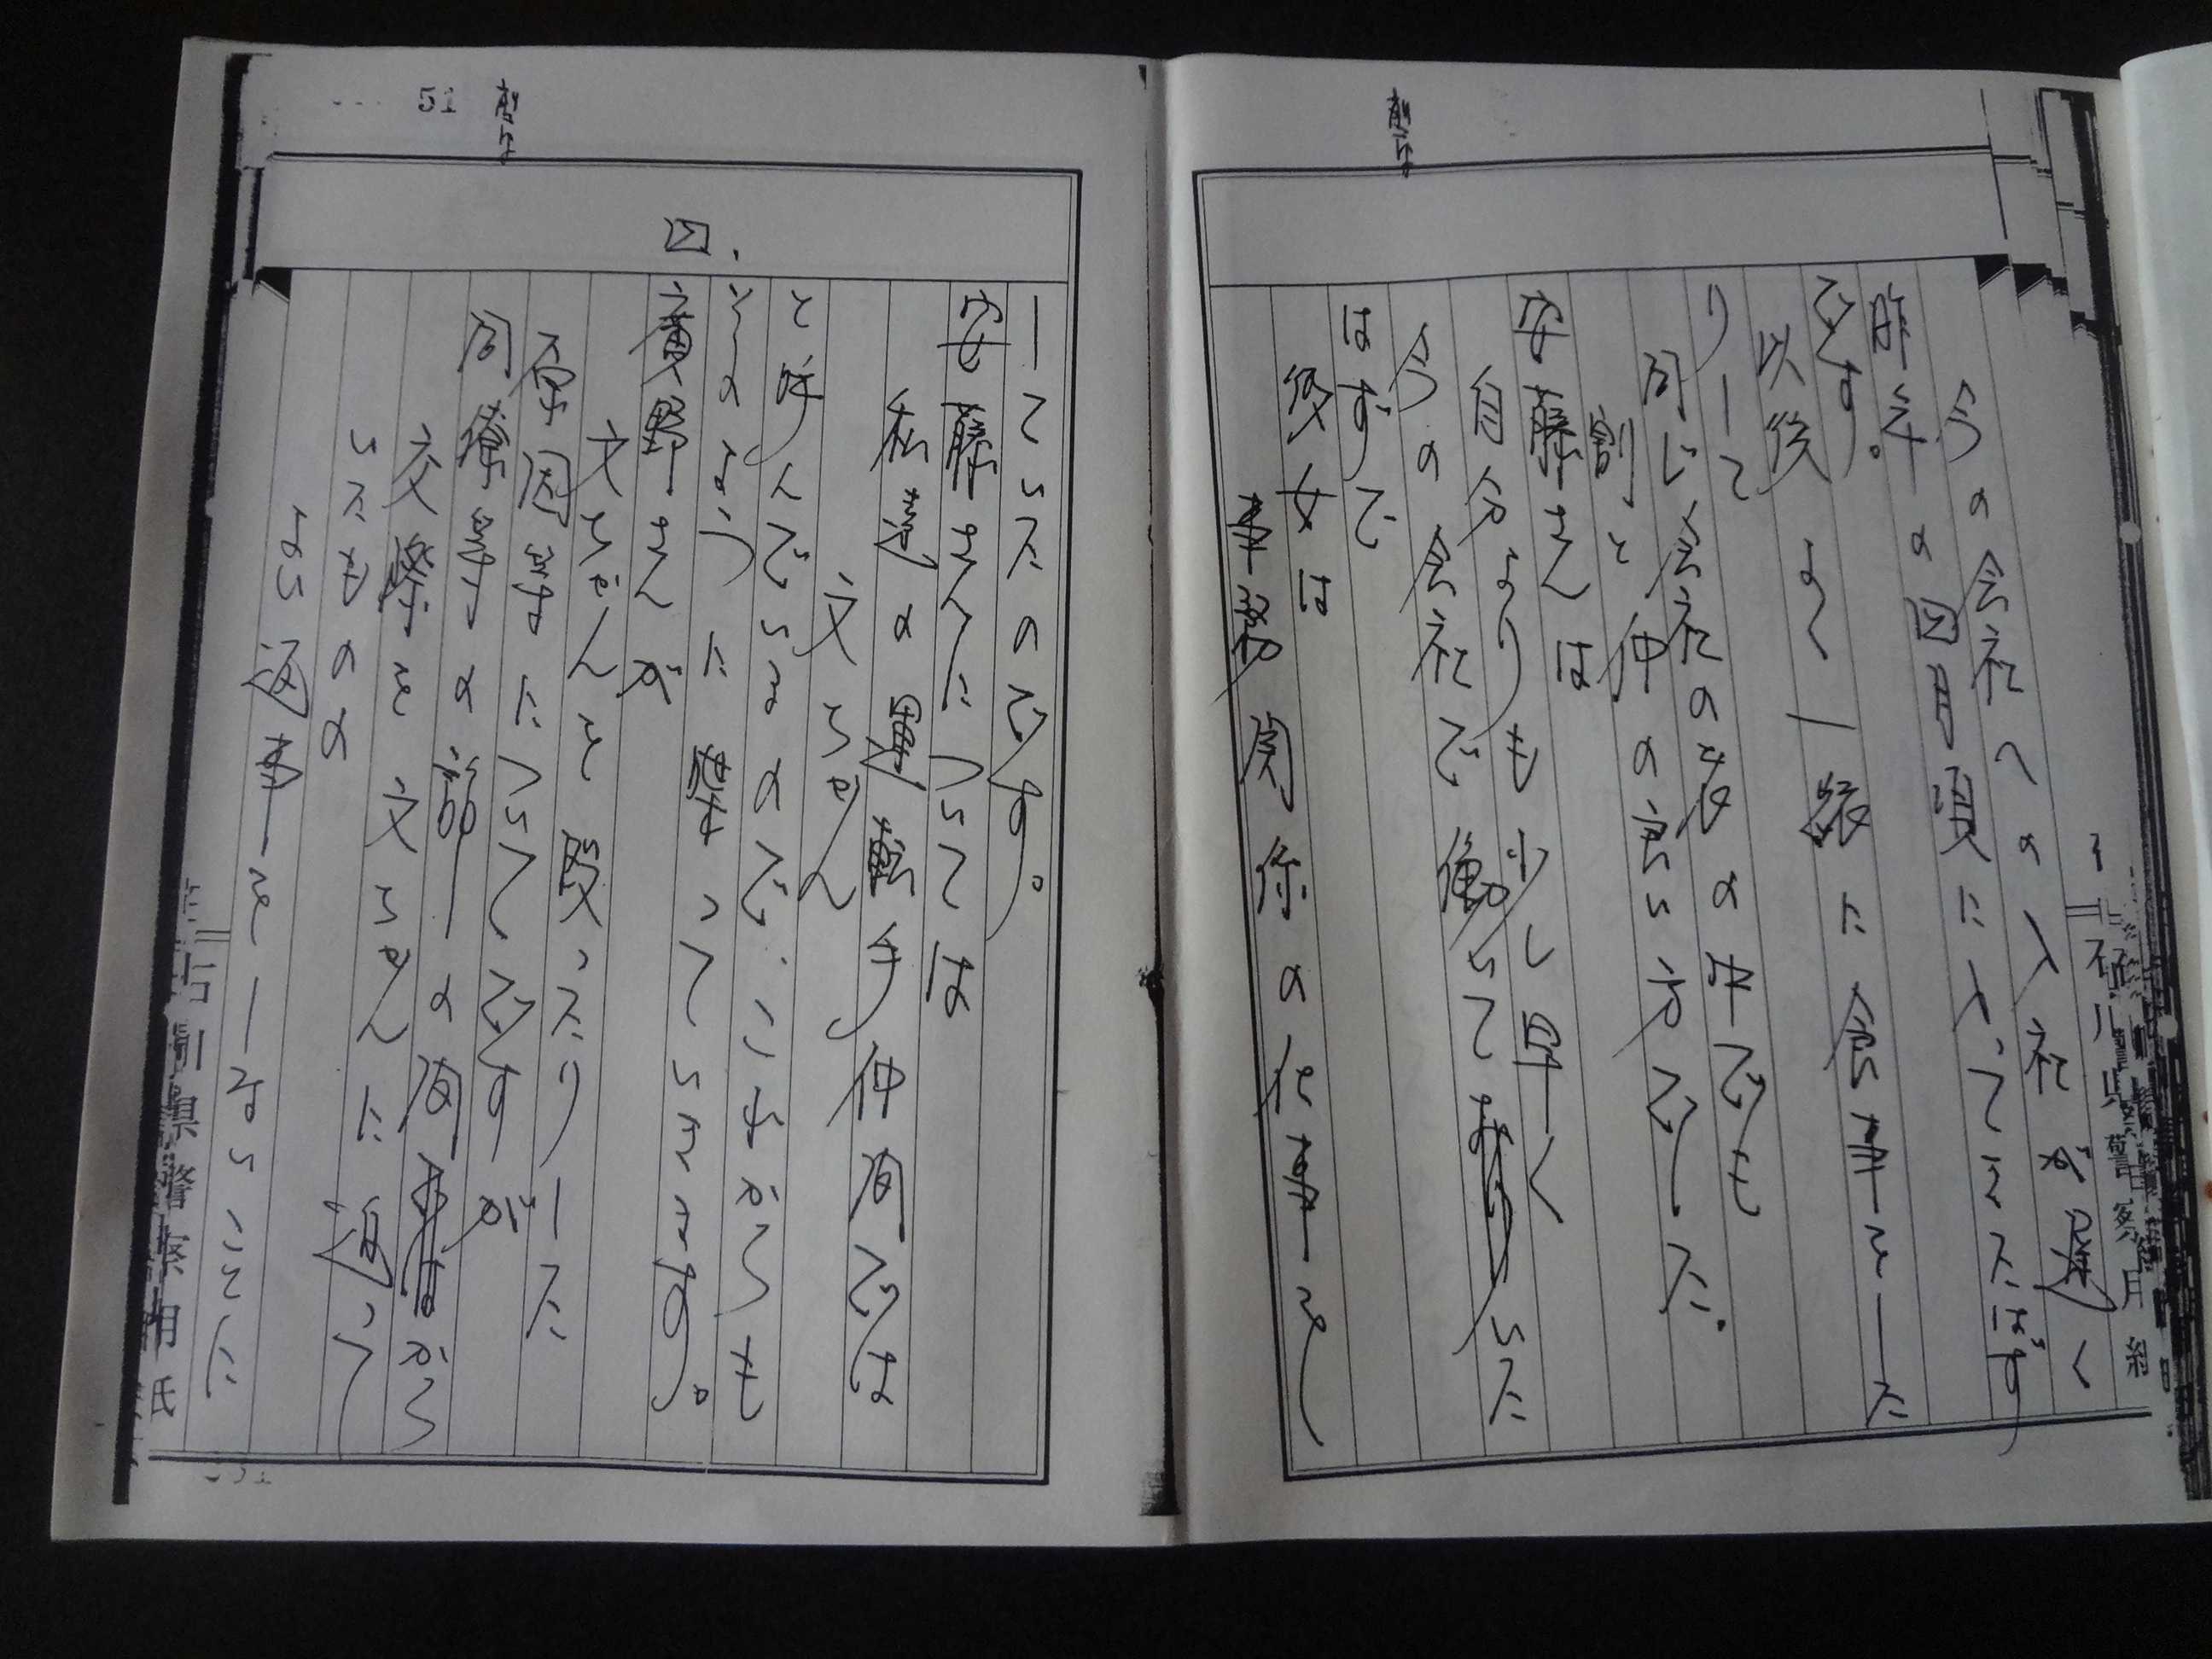 今の会社への入社が遅く
昨年の四月頃に入ってきたはず
です。
以後よく一緒に食事をした
りして
同じ会社の者の中でも
割と仲の良い方でした。
安藤さんは
自分よりも少し早く
今の会社で働いていた
はずで
彼女は
事務関係の仕事を
51
していたのです。
安藤さんについては
私達の運転手仲間では
文ちゃん
と呼んでいるので、これからも
そのように
四.
廣野さんが
文ちゃんを殴ったりした
原因等についてですが
同僚等の話しの内容から
交際を文ちゃんに迫って
いたものの
はい返事をしないことに
石川県警察